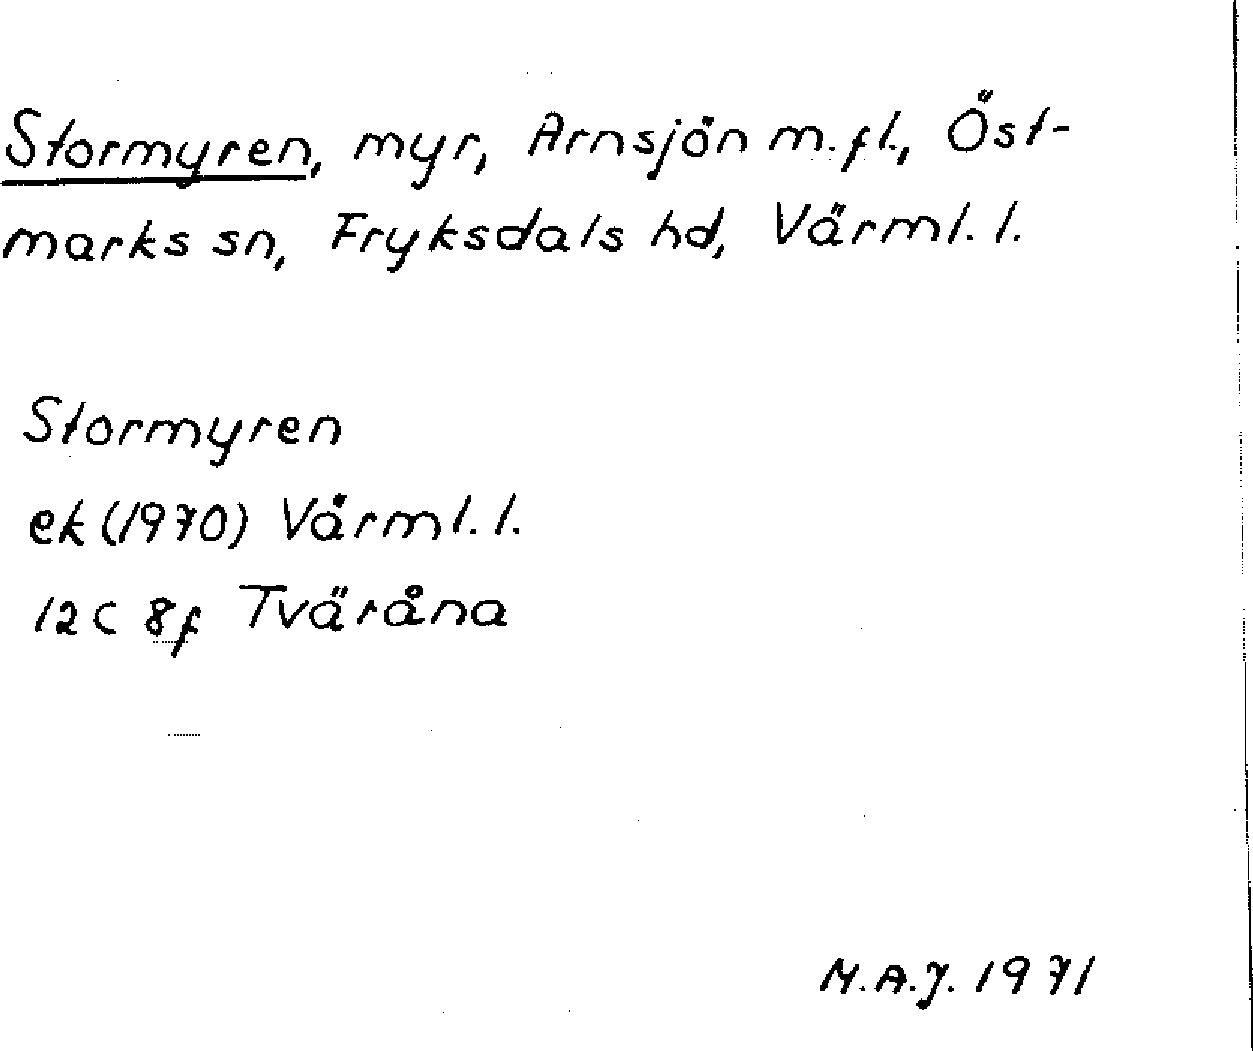 Stormyren, myr, Arnsjön m.fl., Öst-
marks sn, Fryksdals hd, Värml. l.
Stormyren
ek (1970) Värml. l.
12 C 8f Tväråna
M.A.J. 1971